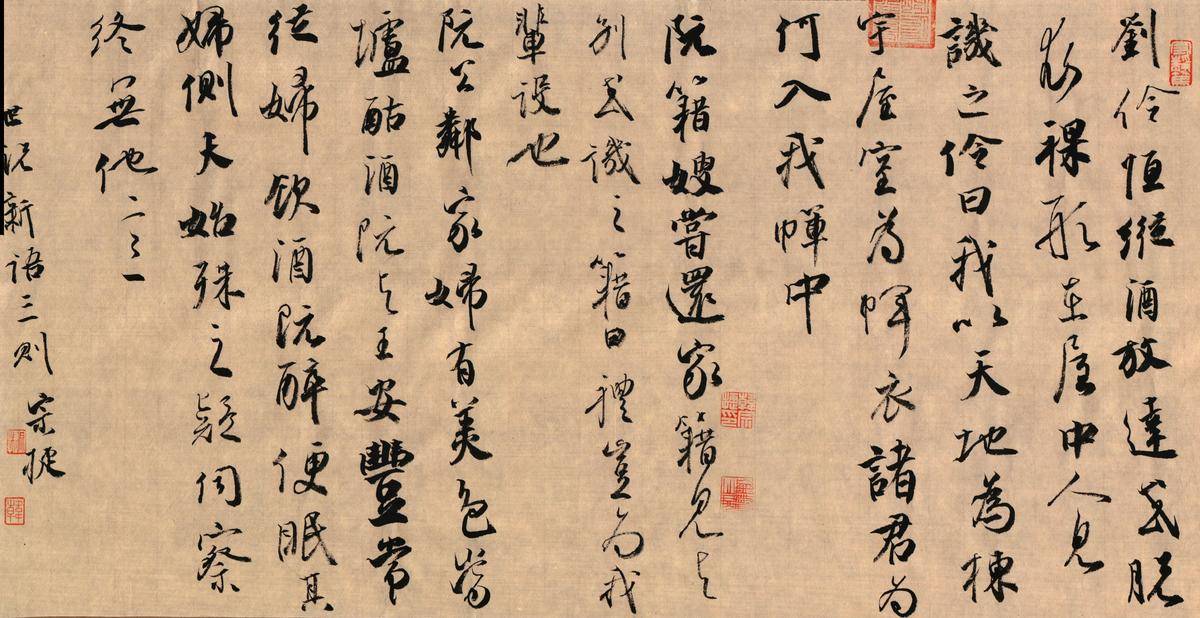 劉伶恒縱酒放達或脫
衣裸形在屋中人見
譏之伶曰我以天地為棟
宇屋室為幝衣諸君為
何入我幝中
阮籍嫂嘗還家籍見與
別或譏之籍曰禮豈為我
輩設也
阮公鄰家婦有美色當
壚酤酒阮與王安豐常
從婦飲酒阮醉便眠其
婦側夫始殊之疑伺察
終無他意
世説新語三則